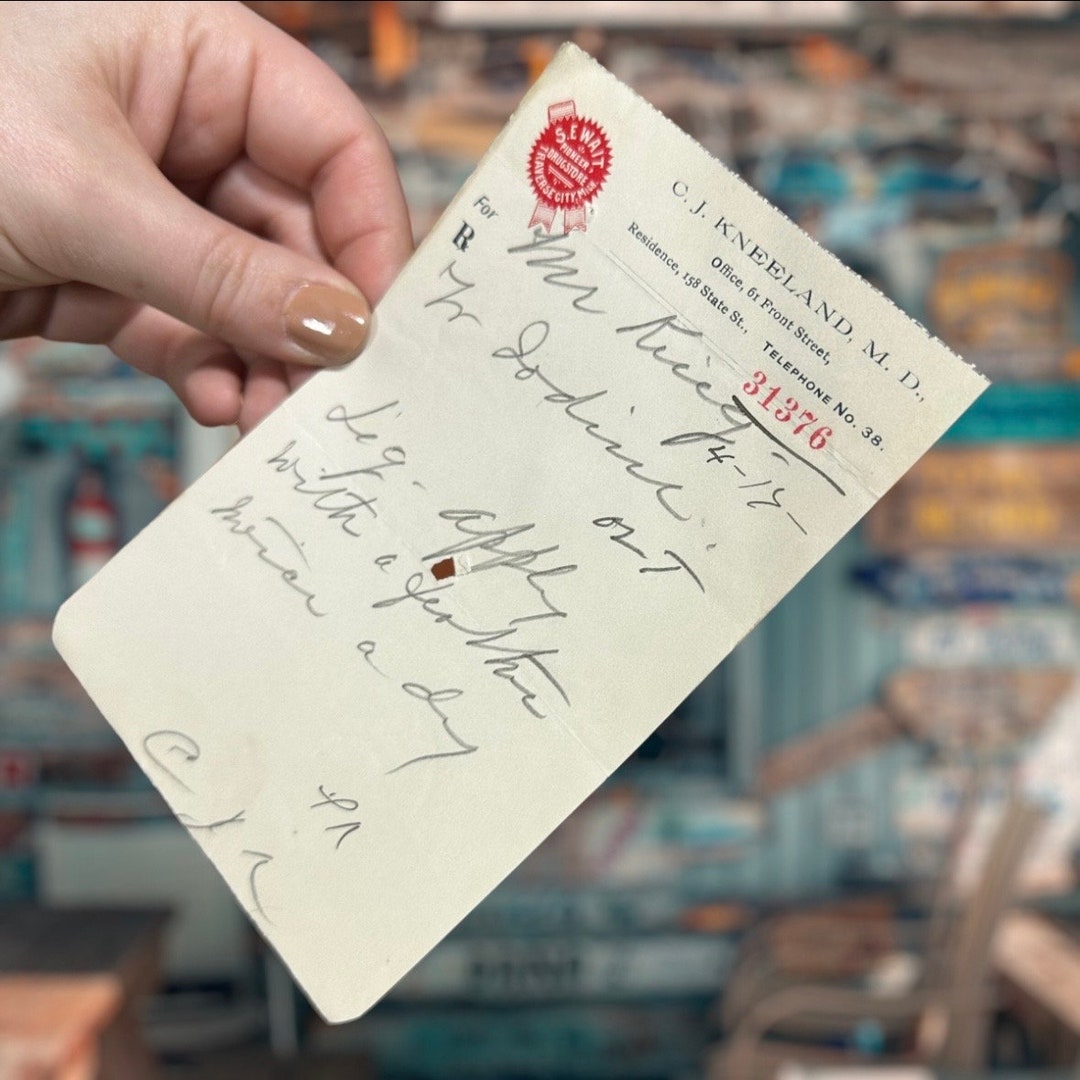 S. E. WAIT
PIONEER
DRUGSTORE
TRAVERSE CITY, MICH.
C. J. KNEELAND, M. D.,
Office, 61 Front Street,
Residence, 158 State St.,
TELEPHONE No. 38.
31376
For Mr
4-15-
R Tr Iodine. oz T
Sig. apply
with a feather
twice a dy